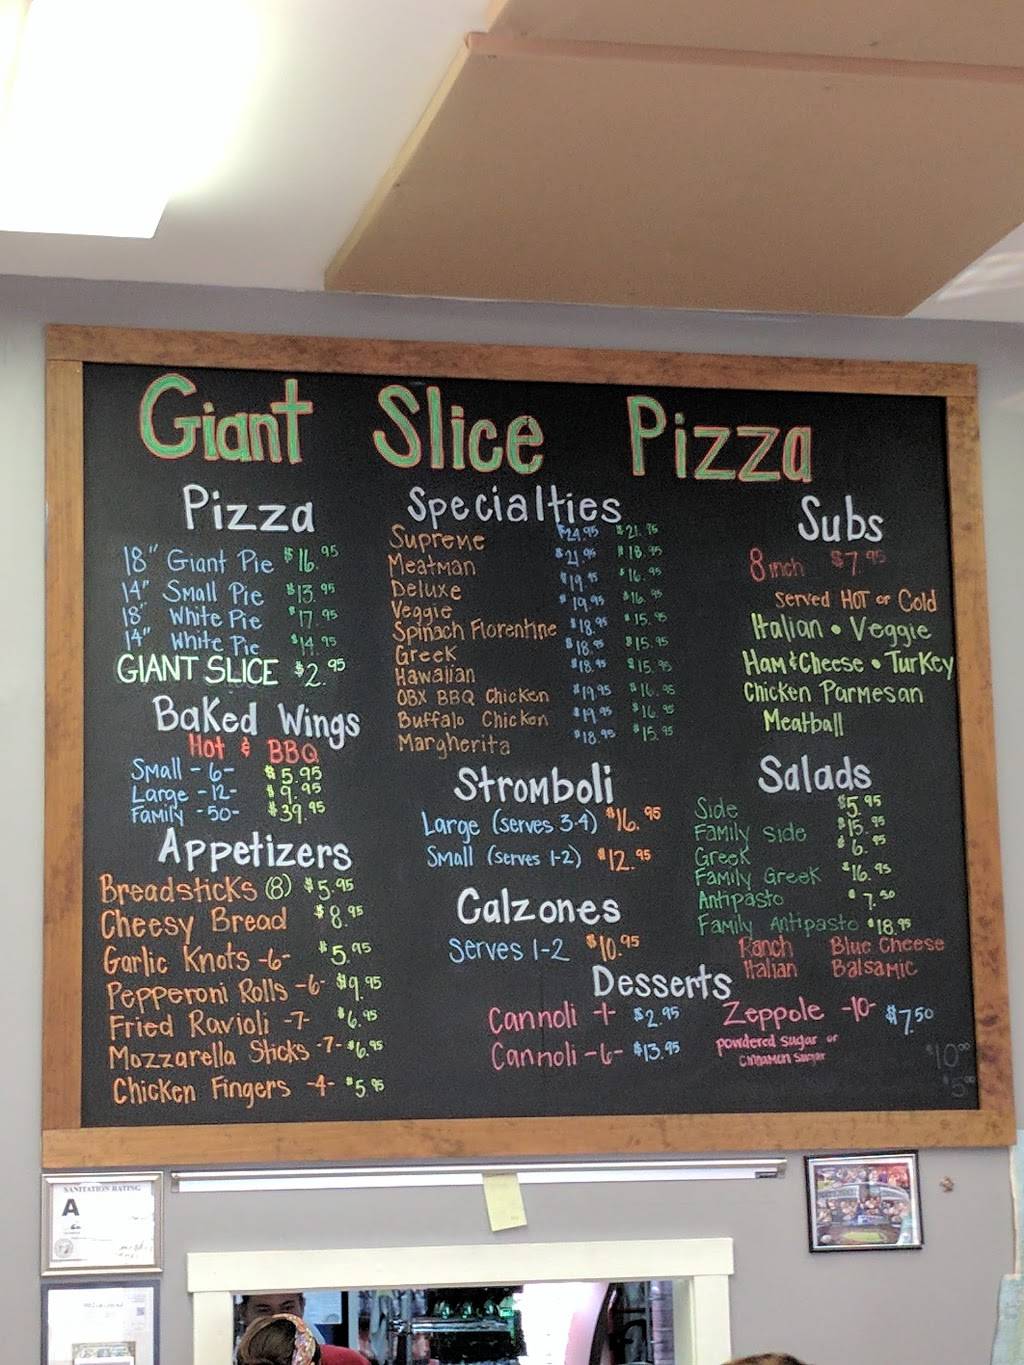 Giant Slice Pizza
Pizza
18" Giant Pie $16.95
14" Small Pie $13.95
18" White Pie $17.95
14" White Pie $14.95
GIANT SLICE $2.95
Baked Wings
Hot & BBQ
Small - 6 - $5.95
Large - 12 - $9.95
Family - 50 - $39.95
Appetizers
Breadsticks (8) $5.95
Cheesy Bread $8.95
Garlic Knots - 6 - $5.95
Pepperoni Rolls - 6 - $9.95
Fried Ravioli - 7 - $6.95
Mozzarella Sticks - 7 - $6.95
Chicken Fingers - 4 - $5.95
Specialties
Supreme $24.95 $21.95
Meatman $21.95 $18.95
Deluxe $19.95 $16.95
Veggie $19.95 $16.95
Spinach Florentine $18.95 $15.95
Greek $18.95 $15.95
Hawaiian $18.95 $15.95
OBX BBQ Chicken $19.95 $16.95
Buffalo Chicken $19.95 $16.95
Margherita $18.95 $15.95
Stromboli
Large (serves 3-4) $16.95
Small (serves 1-2) $12.95
Calzones
Serves 1-2 $10.95
Subs
8 inch $7.95
Served HOT or Cold
Italian • Veggie
Ham & Cheese • Turkey
Chicken Parmesan
Meatball
Salads
Side $5.95
Family Side $15.95
Greek $6.95
Family Greek $16.95
Antipasto $7.50
Family Antipasto $18.95
Ranch Blue Cheese
Italian Balsamic
Desserts
Cannoli - 1 - $2.95
Cannoli - 6 - $13.95
Zeppole - 10 - $7.50
powdered sugar or
cinnamon sugar
$10.00
$5.00
SANITATION RATING
A